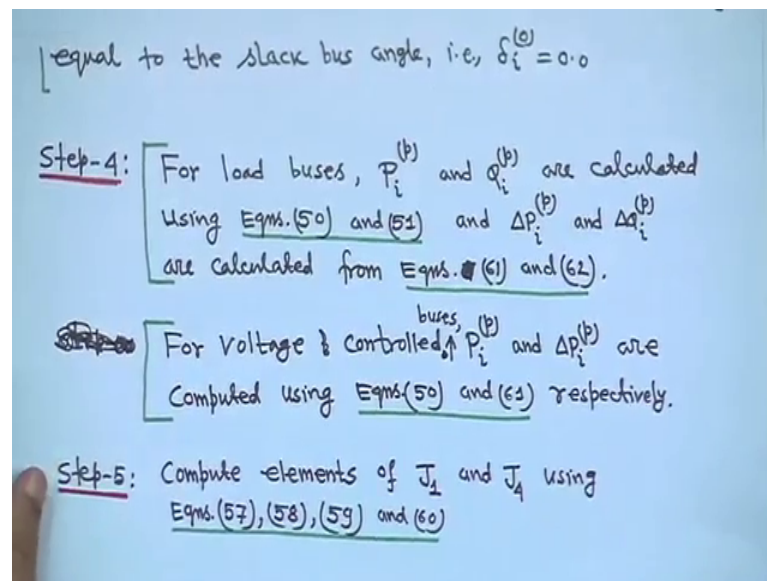 equal to the slack bus angle, i.e., δᵢ⁽⁰⁾ = 0.0
Step-4: For load buses, Pᵢ⁽ᵖ⁾ and Qᵢ⁽ᵖ⁾ are calculated
Using Eqns.(50) and (51) and ΔPᵢ⁽ᵖ⁾ and ΔQᵢ⁽ᵖ⁾
are calculated from Eqns. (61) and (62).
For Voltage controlled buses, Pᵢ⁽ᵖ⁾ and ΔPᵢ⁽ᵖ⁾ are
Computed using Eqns.(50) and (61) respectively.
Step-5: Compute elements of J₁ and J₄ using
Eqns.(57),(58),(59) and (60)